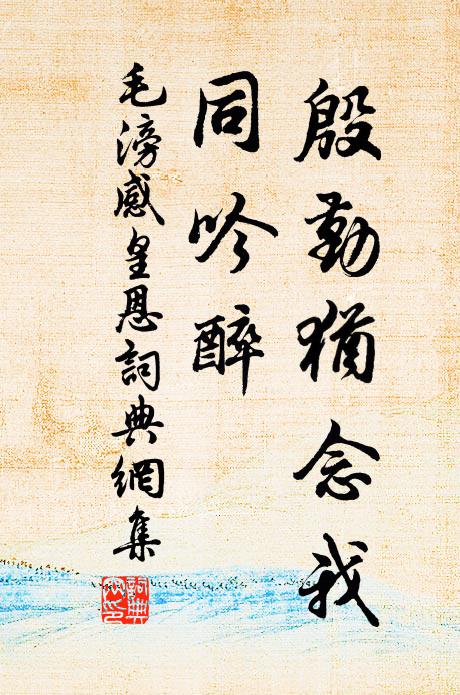 殷勤猶念我
同吟醉
毛滂感皇恩詞典網集